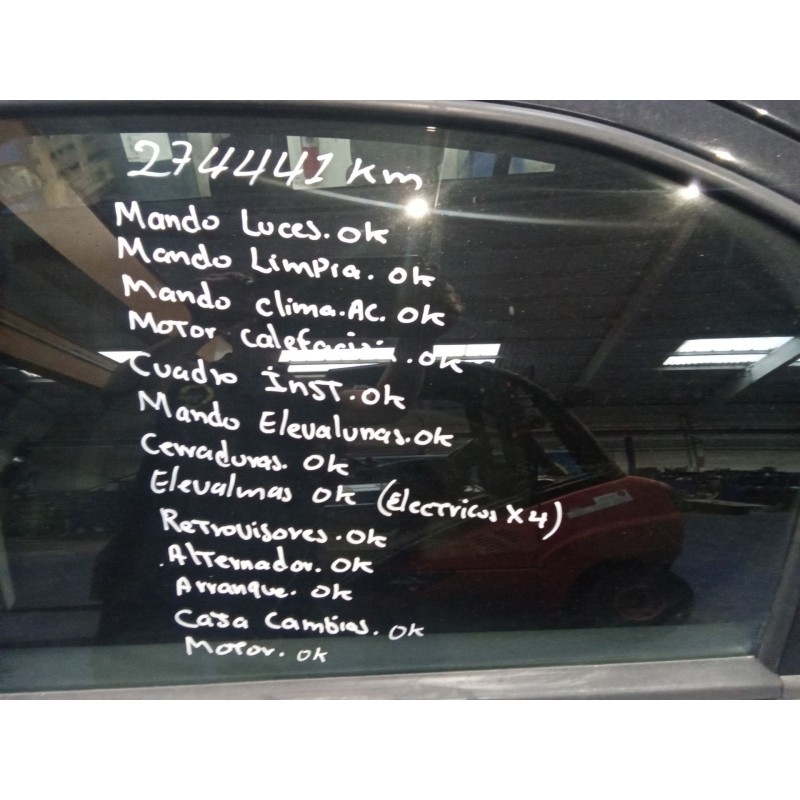 274441 Km
Mando Luces. OK
Mando Limpia. OK
Mando clima. AC. OK
Motor Calefacion. OK
Cuadro Inst. OK
Mando Elevalunas. OK
Cerraduras. OK
Elevalunas OK (Electricos X 4)
Retrovisores. OK
Alternador. OK
Arranque. OK
Caja Cambios. OK
Motor. OK